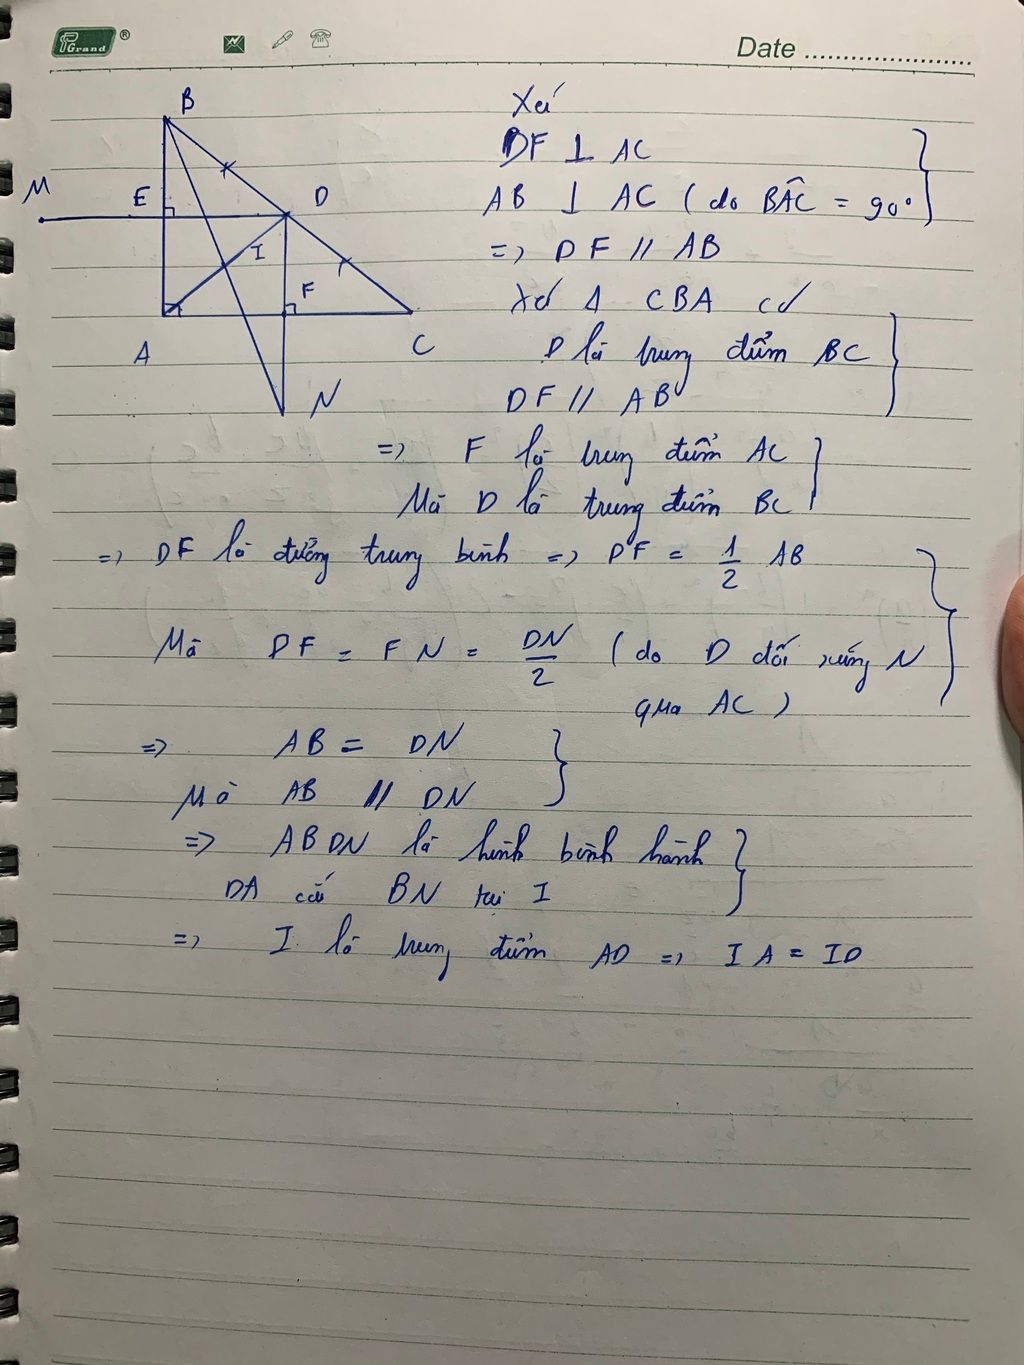 Grand ®
Date
B
M
E
D
I
F
A
C
N
Xét
DF ⊥ AC
AB ⊥ AC ( do BÂC = 90° )
=> DF // AB
Xét Δ CBA có
D là trung điểm BC
DF // AB
=> F là trung điểm AC
Mà D là trung điểm BC
=> DF là đường trung bình => DF = 1/2 AB
Mà DF = FN = DN/2 ( do D đối xứng N
qua AC )
=> AB = DN
Mà AB // DN
=> ABDN là hình bình hành
DA cắt BN tại I
=> I là trung điểm AD => IA = ID